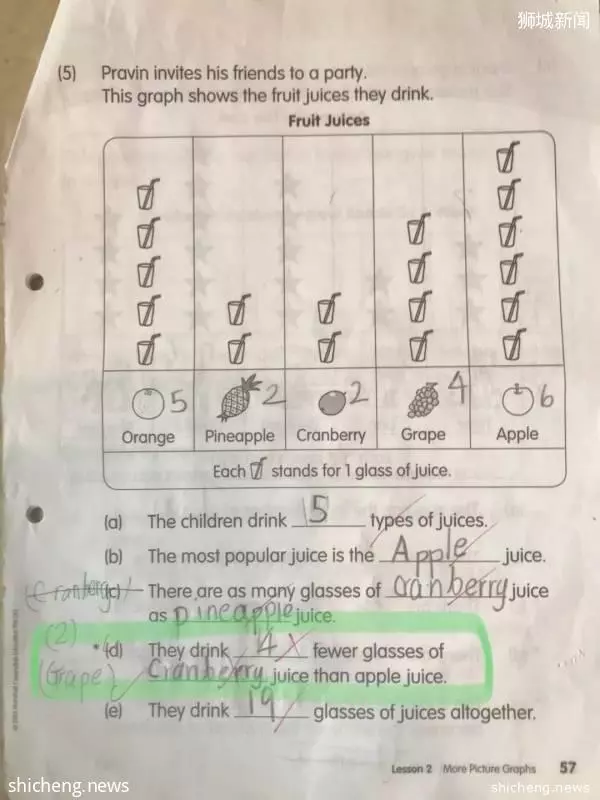 狮城新闻
(5) Pravin invites his friends to a party.
This graph shows the fruit juices they drink.
Fruit Juices
5 2 2 4 6
Orange Pineapple Cranberry Grape Apple
Each stands for 1 glass of juice.
(a) The children drink 5 types of juices.
(b) The most popular juice is the Apple juice.
(Cranberry) (c) There are as many glasses of cranberry juice
as pineapple juice.
(2) *(d) They drink 4 fewer glasses of
(Grape) Cranberry juice than apple juice.
(e) They drink 19 glasses of juices altogether.
Lesson 2 More Picture Graphs 57
shicheng.news
shicheng.news